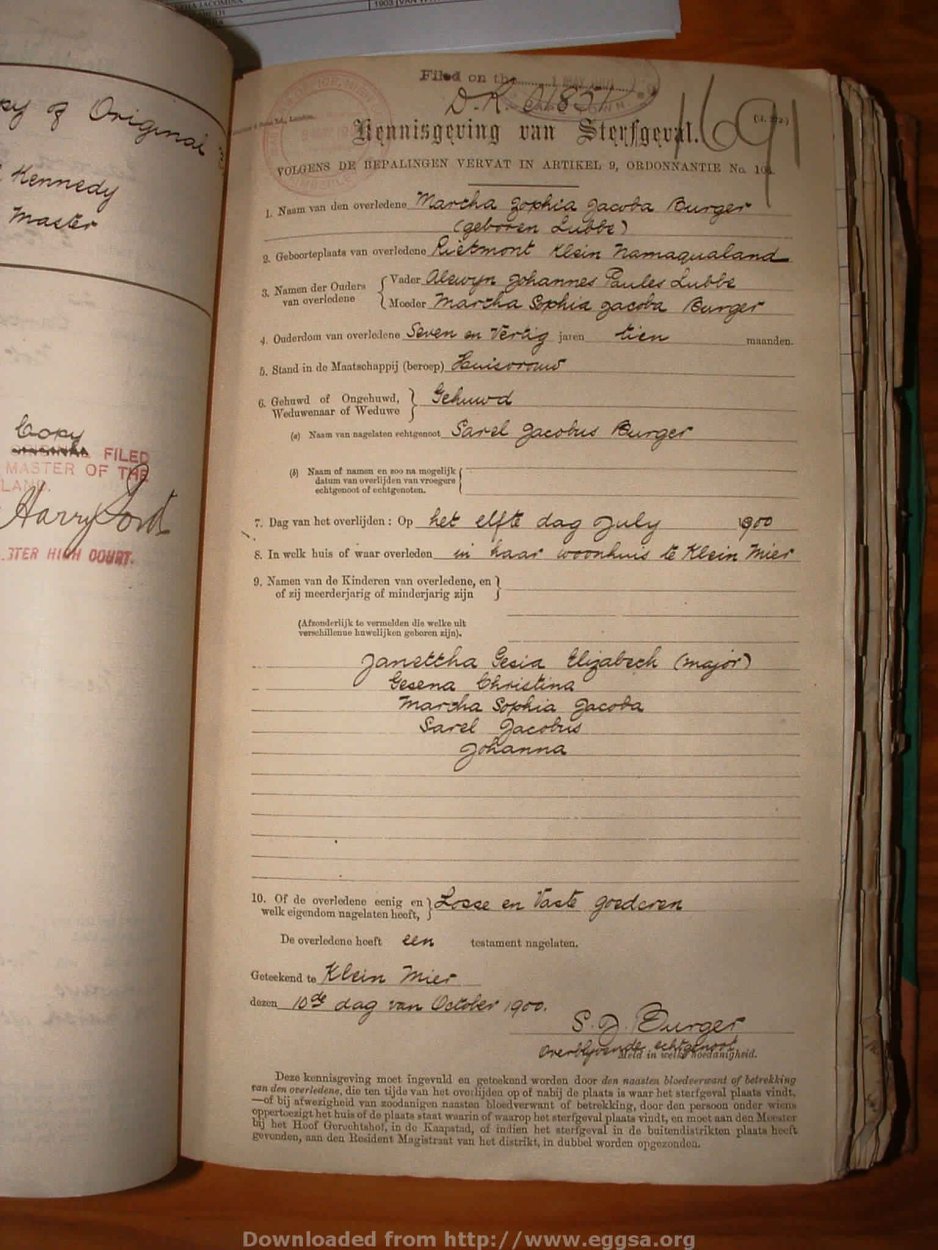 1903
py of Original
Kennedy
Master
Copy
FILED
MASTER OF THE
LAND.
Harry Lord
STER HIGH COURT.
Filed on the
D.R. 
1691
Kennisgeving van Sterfgeval.
VOLGENS DE BEPALINGEN VERVAT IN ARTIKEL 9, ORDONNANTIE No. 104.
1. Naam van den overledene Martha Sophia Jacoba Burger
(geboren Lubbe)
2. Geboorteplaats van overledene Rietmont Klein Namaqualand
3. Namen der Ouders van overledene { Vader Alewyn Johannes Paules Lubbe
Moeder Martha Sophia Jacoba Burger
4. Ouderdom van overledene Seven en Vertig jaren tien maanden.
5. Stand in de Maatschappij (beroep) Huisvrouw
6. Gehuwd of Ongehuwd, Weduwenaar of Weduwe } Gehuwd
(a) Naam van nagelaten echtgenoot Sarel Jacobus Burger
(b) Naam of namen en zoo na mogelijk
datum van overlijden van vroegere
echtgenoot of echtgenoten.
7. Dag van het overlijden: Op het elfte dag July 1900
8. In welk huis of waar overleden in haar woonhuis te Klein Mier
9. Namen van de Kinderen van overledene, en
of zij meerderjarig of minderjarig zijn
(Afzonderlijk te vermelden die welke uit
verschillenne huwelijken geboren zijn).
Janettha Gesia Elizabeth (major)
Gesena Christina
Martha Sophia Jacoba
Sarel Jacobus
Johanna
10. Of de overledene eenig en welk eigendom nagelaten heeft, } Losse en Vaste goederen
De overledene heeft een testament nagelaten.
Geteekend te Klein Mier
dezen 10de dag van October 1900.
S. J. Burger
Overblyvende echtgenoot
Meld in welke hoedanigheid.
Deze kennisgeving moet ingevuld en geteekend worden door den naasten bloedverwant of betrekking
van den overledene, die ten tijde van het overlijden op of nabij de plaats is waar het sterfgeval plaats vindt,
—of bij afwezigheid van zoodanigen naasten bloedverwant of betrekking, door den persoon onder wiens
oppertoezigt het huis of de plaats staat waarin of waarop het sterfgeval plaats vindt, en moet aan den Meester
bij het Hoof Gerechtshof, in de Kaapstad, of indien het sterfgeval in de buitendistrikten plaats heeft
gevonden, aan den Resident Magistraat van het distrikt, in dubbel worden opgezonden.
Downloaded from http://www.eggsa.org